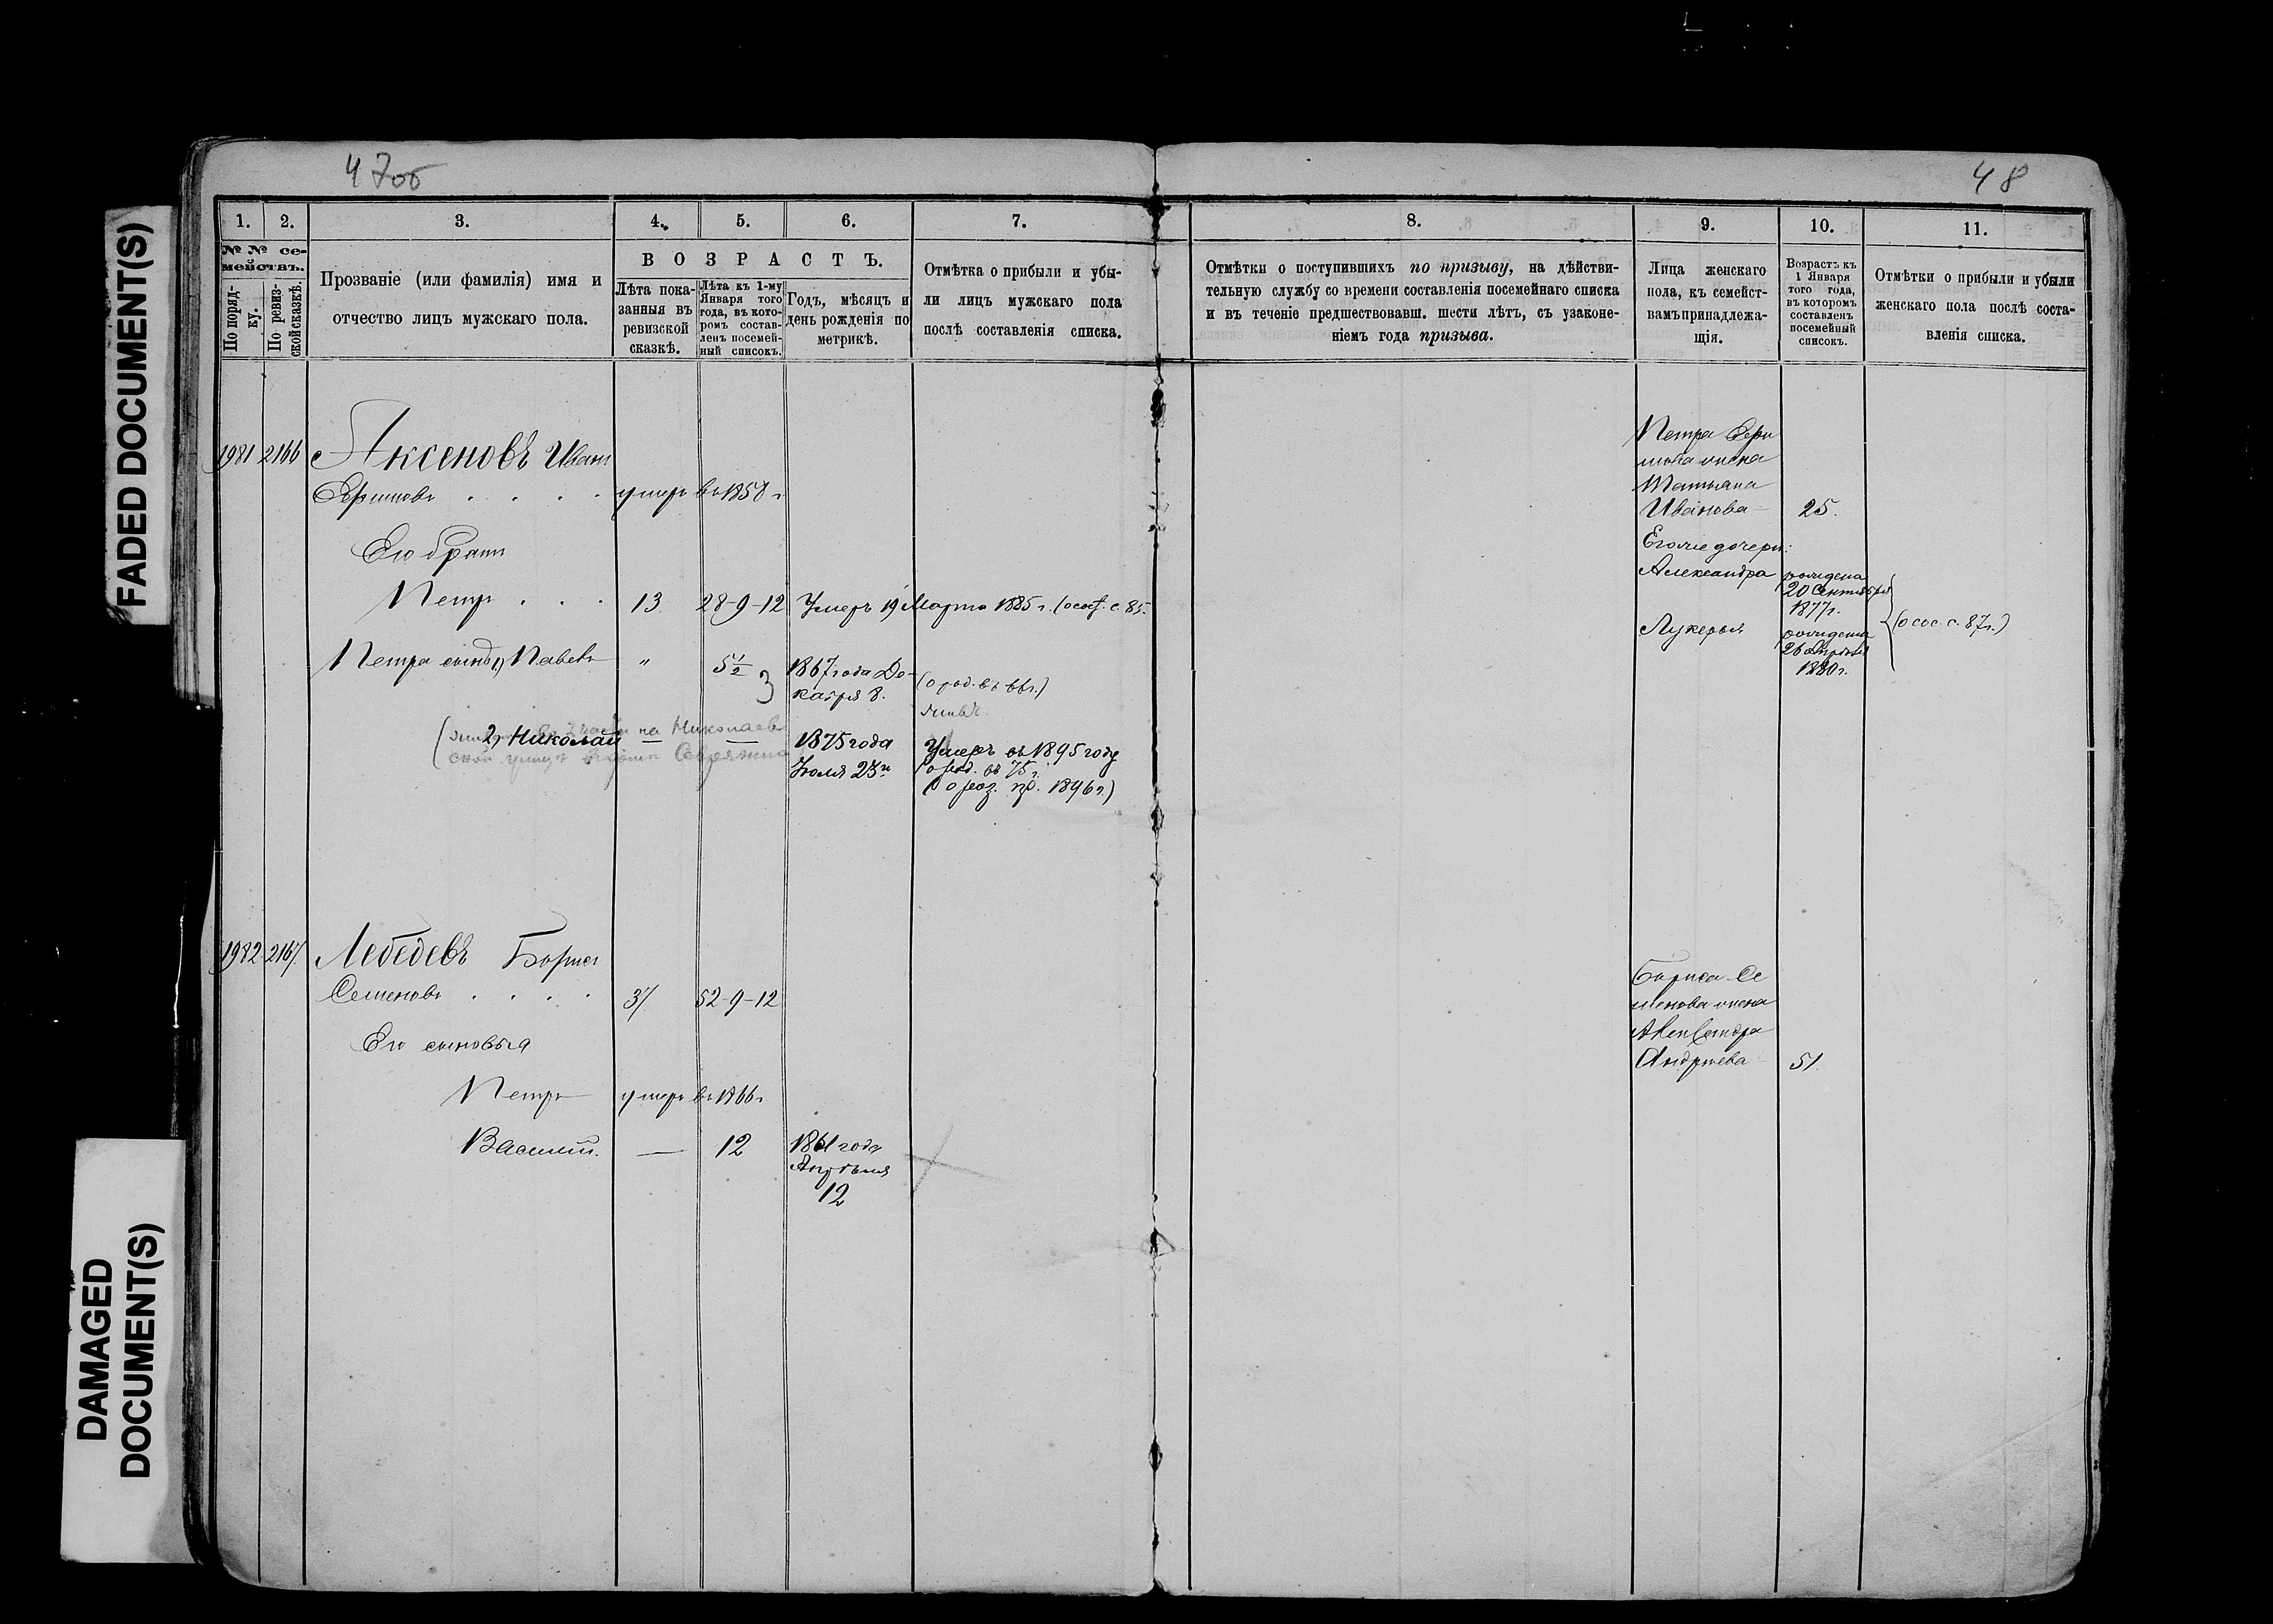 FADED DOCUMENT(S)
DAMAGED
DOCUMENT(S)
47об
48
1.
2.
3.
4.
5.
6.
7.
8.
9.
10.
11.
№ № се-
мействъ.
По поряд-
ку.
По ревиз-
ской сказкѣ.
Прозваніе (или фамилія) имя и
отчество лицъ мужскаго пола.
ВОЗРАСТЪ.
Лѣта пока-
занныя въ
ревизской
сказкѣ.
Лѣта къ 1-му
Января того
года, въ кото-
ромъ состав-
ленъ посемей-
ный списокъ.
Годъ, мѣсяцъ и
день рожденія по
метрикѣ.
Отмѣтка о прибыли и убы-
ли лицъ мужскаго пола
послѣ составленія списка.
Отмѣтки о поступившихъ по призыву, на дѣйстви-
тельную службу со времени составленія посемейнаго списка
и въ теченіе предшествовавш. шести лѣтъ, съ узаконе-
ніемъ года призыва.
Лица женскаго
пола, къ семейст-
вамъ принадлежа-
щія.
Возрастъ къ
1 Января
того года,
въ которомъ
составленъ
посемейный
списокъ.
Отмѣтки о прибыли и убыли
женскаго пола послѣ соста-
вленія списка.
1981 2166 Аксеновъ Иванъ
Ефимовъ . . . . умеръ въ 1858 г
Его братъ
Петръ . . . 13. 28-9-12 Умеръ 19 Марта 1885 г. 85.
Петра сынъ 1) Павелъ " 5½ 3 1867 года Де-
кабря 8. (о род. въ
2) Николай — — 1875 года
Іюля 23 Умеръ въ 1895 году
въ 75 г.
1896 г.)
на Николаев
ской улицѣ
Петра Ефи
мова жена
Татьяна
Иванова 25.
Его же дочери:
Александра рождена
20 Сентября
1877 г.
Лукерья рождена
26 Апрѣля
1880 г.
87 г.)
1982 2167. Лебедевъ Борисъ
Семеновъ . . . . 37. 52-9-12
Его сыновья
Петръ умеръ въ 1866 г
Василій. — 12 1861 года
Апрѣля
12
Бориса Се
менова жена
Александра
Андреева 51.